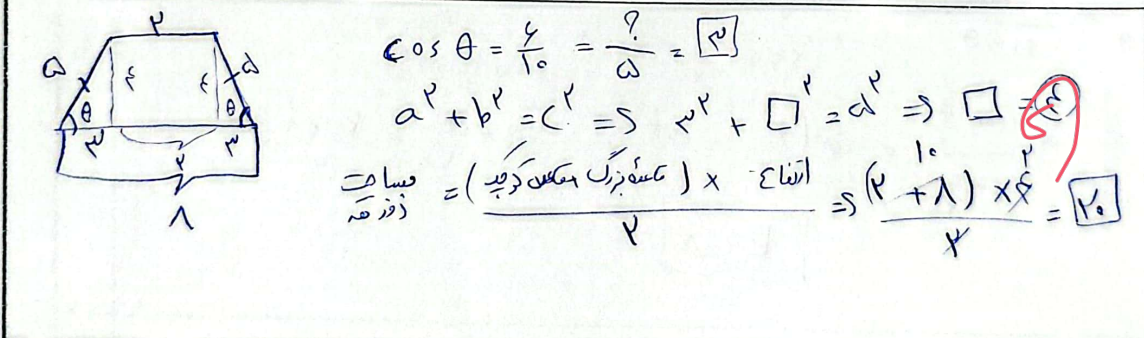 ۲
۵ ۴ ۴ ۵
θ θ
۳ ۲ ۳
۸
cos θ = ۶/۱۰ = ?/۵ = ۳
a^۲ + b^۲ = c^۲ => ۳^۲ + □^۲ = ۵^۲ => □ = ۴
مساحت ذوزنقه = (قاعده بزرگ + قاعده کوچک) × ارتفاع / ۲ => (۲ + ۸) × ۴ / ۲ = ۲۰
۱۰ ۲